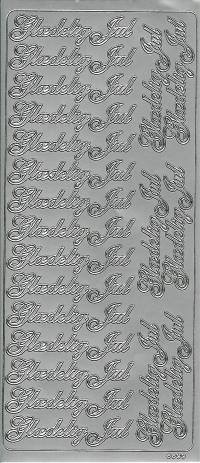 Glædelig Jul
Glædelig Jul
Glædelig Jul
Glædelig Jul
Glædelig Jul
Glædelig Jul
Glædelig Jul
Glædelig Jul
Glædelig Jul
Glædelig Jul
Glædelig Jul
Glædelig Jul
Glædelig Jul
Glædelig Jul
Glædelig Jul
Glædelig Jul
Glædelig Jul
Glædelig Jul
Glædelig Jul
Glædelig Jul
Glædelig Jul